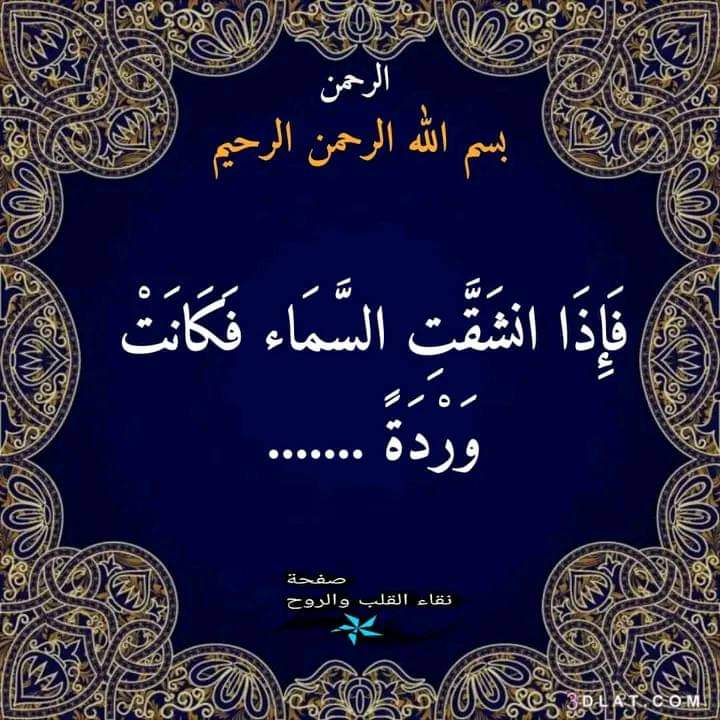 الرحمن
بسم الله الرحمن الرحيم
فَإِذَا انشَقَّتِ السَّمَاء فَكَانَتْ
وَرْدَةً .......
صفحة
نقاء القلب والروح
3DLAT.COM